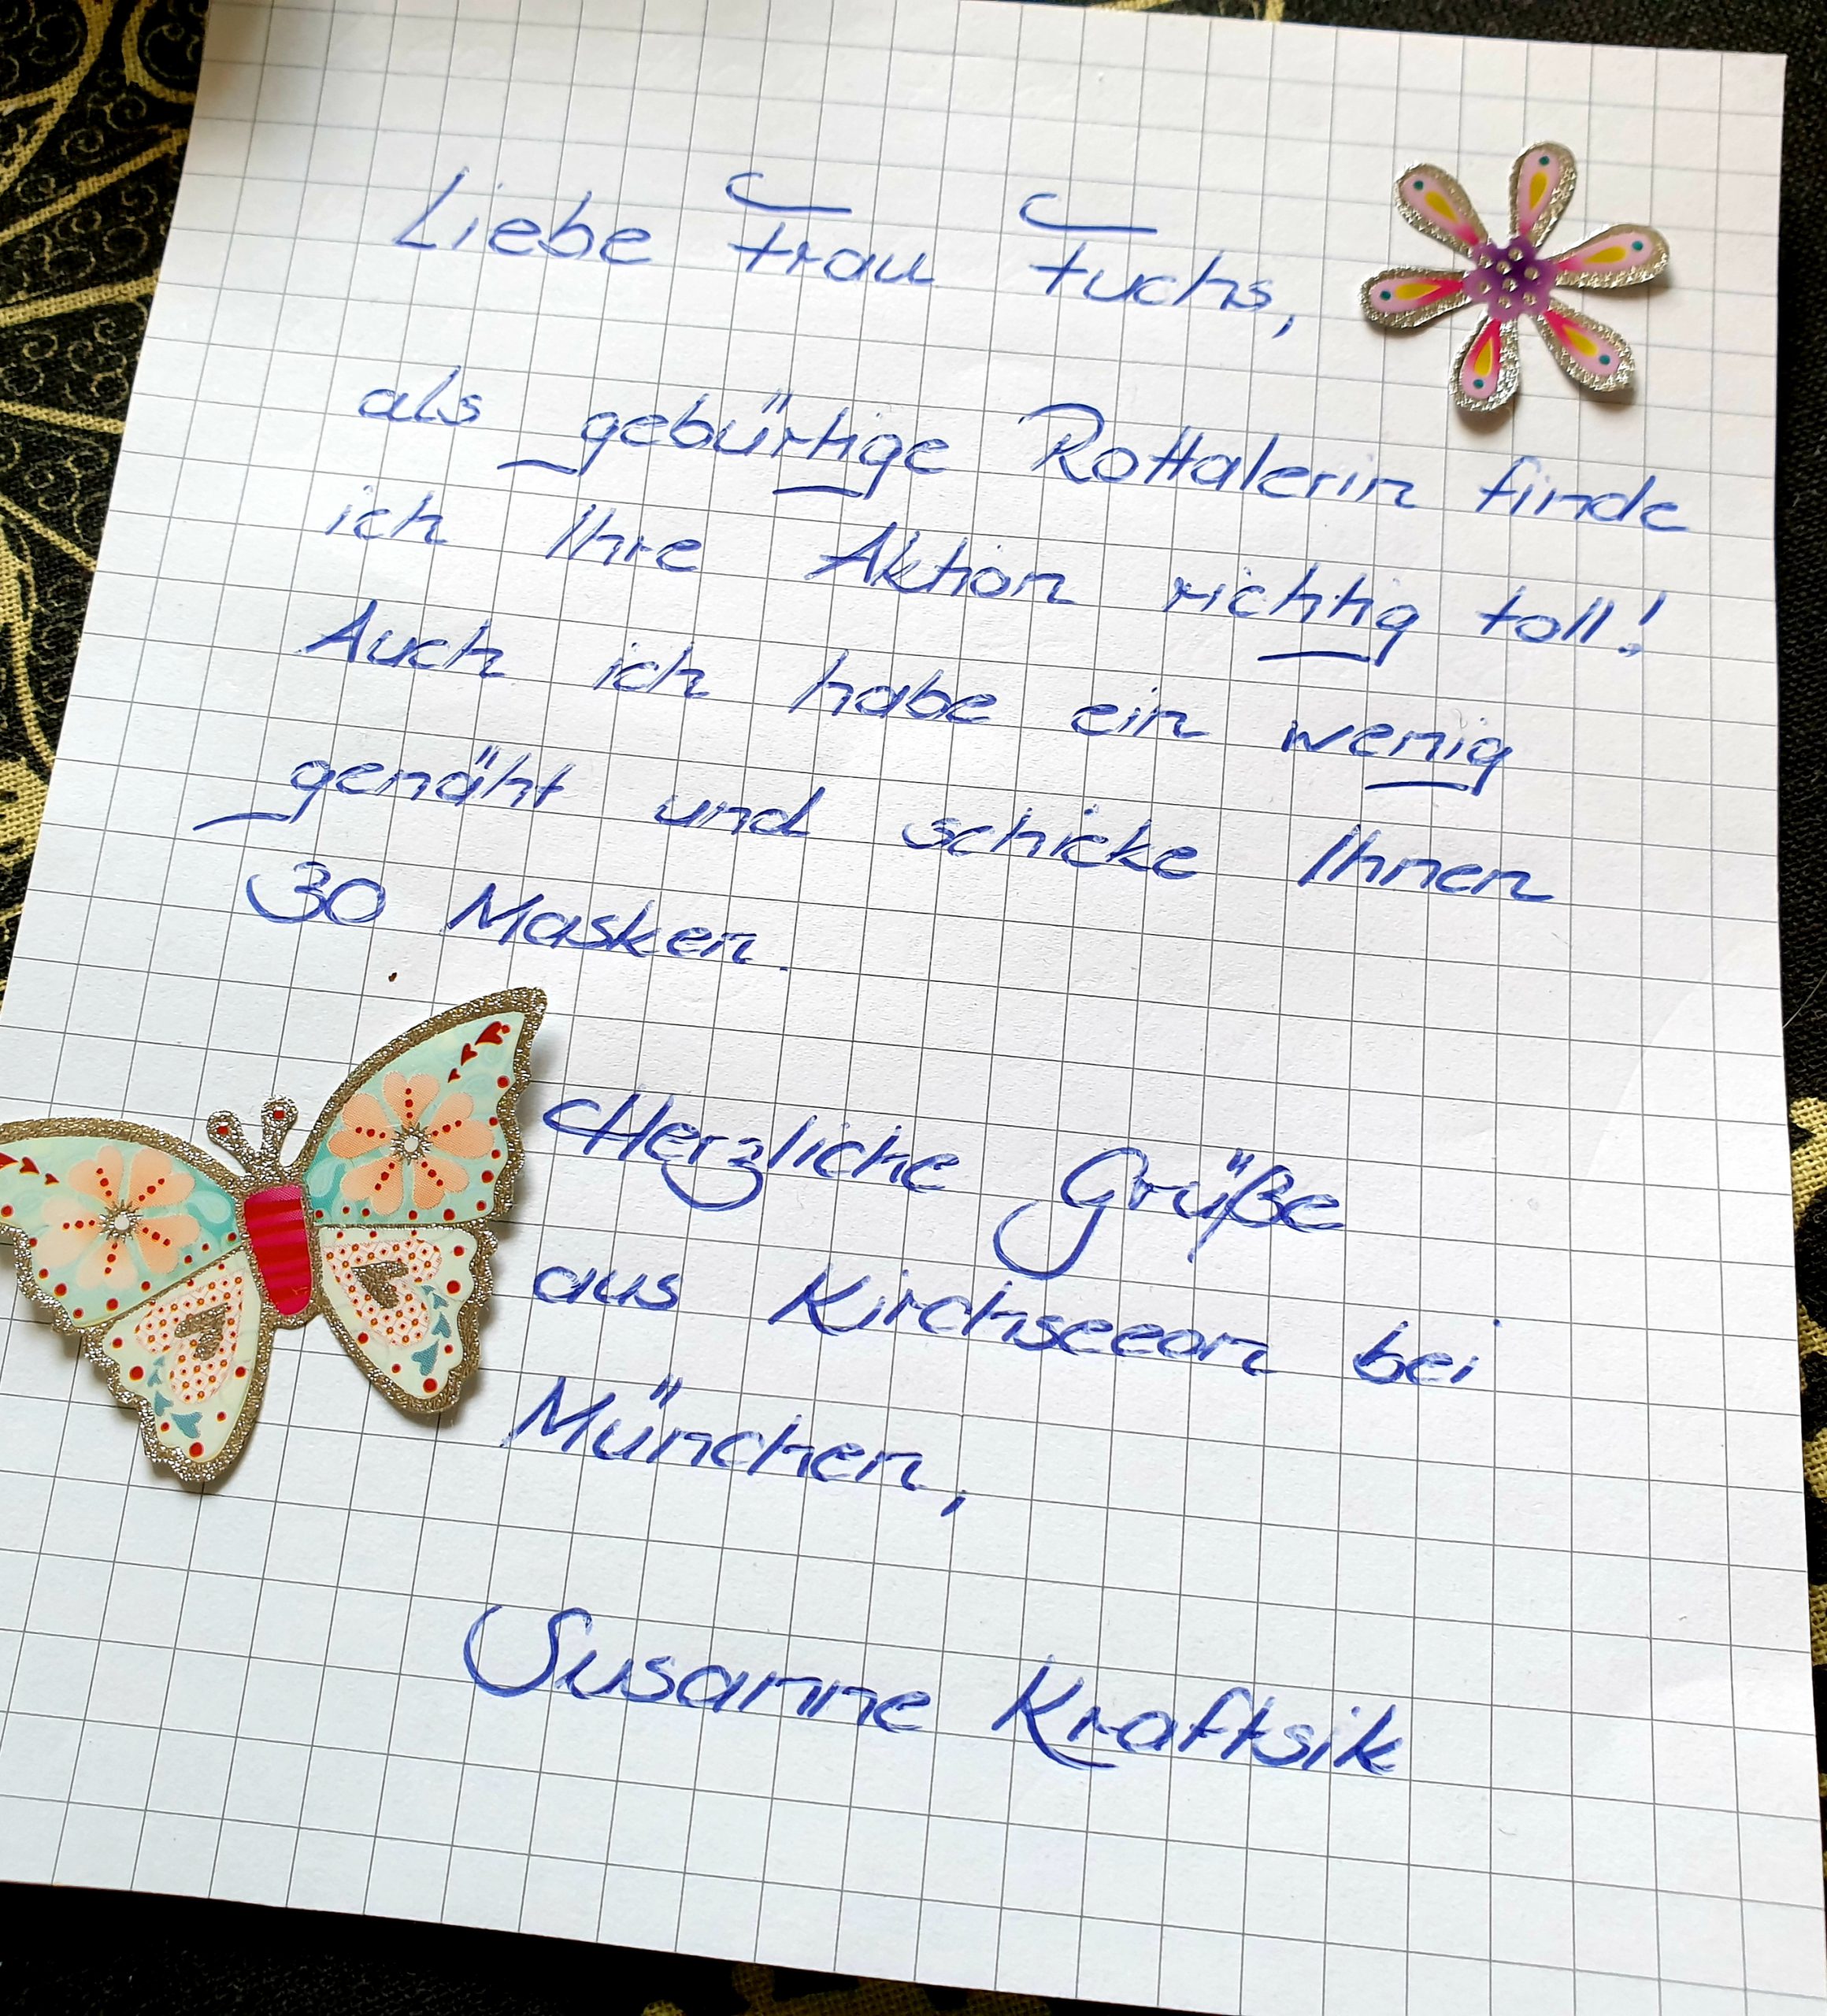 Liebe Frau Fuchs,
als gebürtige Rottalerin finde
ich Ihre Aktion richtig toll!
Auch ich habe ein wenig
genäht und schicke Ihnen
30 Masken.
Herzliche Grüße
aus Kirchseeon bei
München,
Susanne Kraftsik